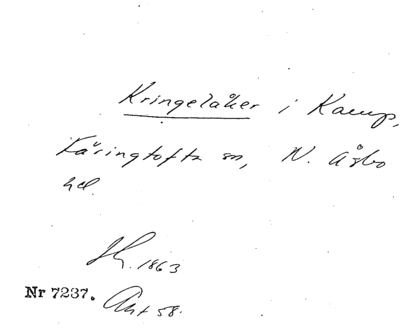 Kringelåker i Kamp,
Käringtofta sn, N. Åsbo
hd.
Sk. 1863
Nr 7237. Ant 58.